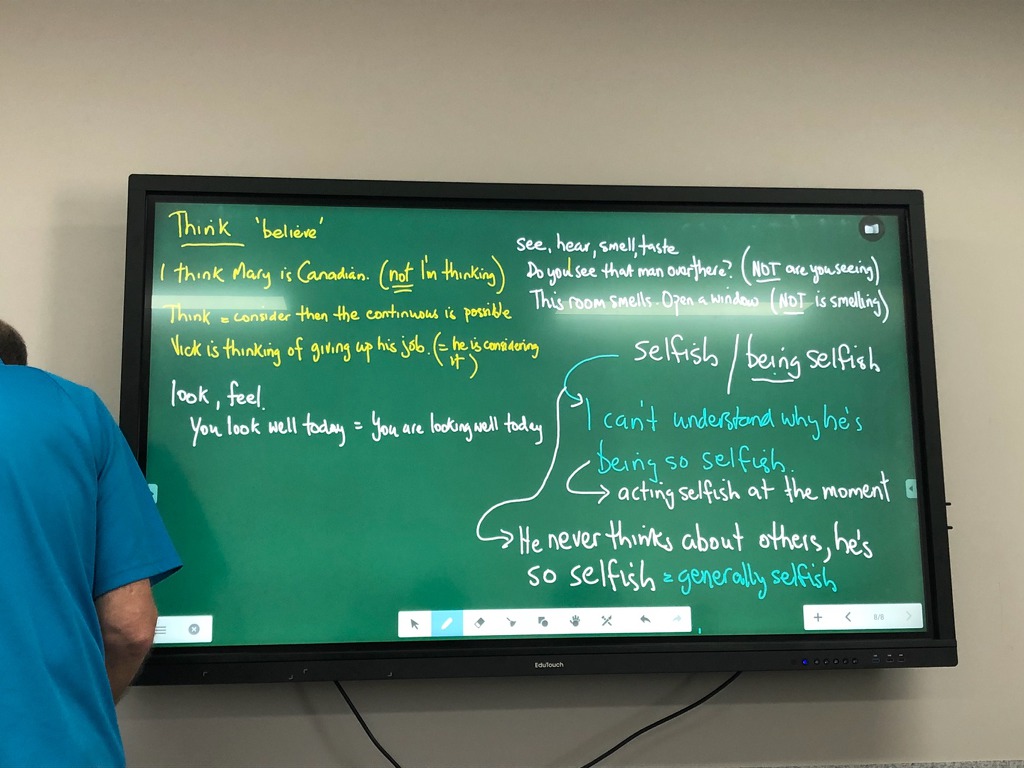 Think 'believe'
I think Mary is Canadian. (not I'm thinking)
Think = consider then the continuous is possible
Nick is thinking of giving up his job. (= he is considering
it)
look, feel.
You look well today = You are looking well today
see, hear, smell, taste
Do you see that man over there? (NOT are you seeing)
This room smells. Open a window (NOT is smelling)
selfish / being selfish
I can't understand why he's
being so selfish.
acting selfish at the moment
He never thinks about others, he's
so selfish = generally selfish
8/8
EduTouch